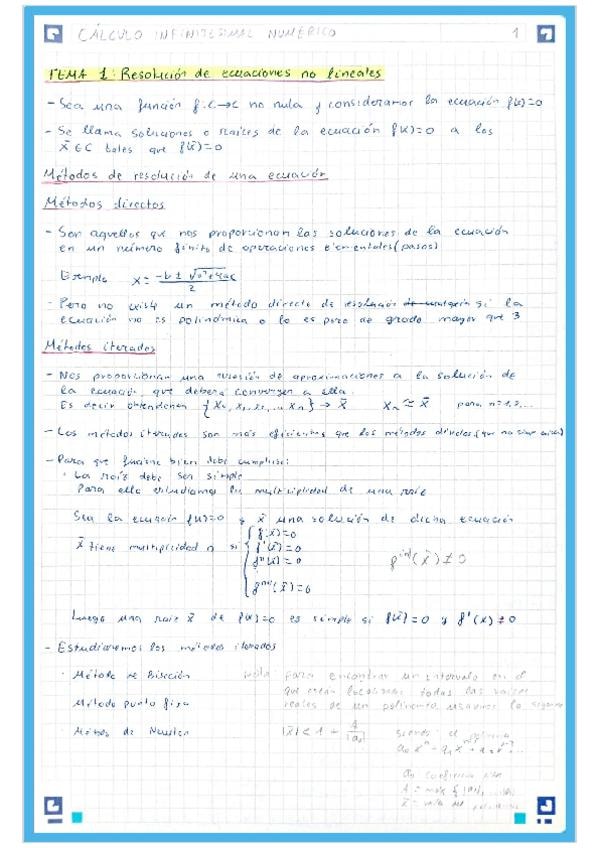 CÁLCULO INFINITESIMAL NUMÉRICO 1
TEMA 1: Resolución de ecuaciones no lineales
- Sea una función f: C→C no nula y consideramos la ecuación f(x)=0
- Se llama soluciones o raíces de la ecuación f(x)=0 a los
x̄ ∈ C tales que f(x̄)=0
Métodos de resolución de una ecuación
Métodos directos
- Son aquellos que nos proporcionan las soluciones de la ecuación
en un número finito de operaciones elementales (pasos)
Ejemplo x = (-b ± √) / 2
- Pero no existe un método directo de resolución si la
ecuación no es polinómica o lo es pero de grado mayor que 3
Métodos iterados
- Nos proporcionan una sucesión de aproximaciones a la solución de
la ecuación, que deberá converger a ella.
Es decir obtendremos {x₀, x₁, x₂, ... xₙ} → x̄ xₙ ≃ x̄ para n=1,2,...
- Los métodos iterados son más eficientes que los métodos directos (que no
- Para que funcione bien debe cumplirse:
· La raíz debe ser simple
Para ello estudiamos la multiplicidad de una raíz
Sea la ecuación f(x)=0 y x̄ una solución de dicha ecuación
x̄ tiene multiplicidad n si { f(x)=0
f'(x̄)=0
f''(x̄)=0
(x̄)=0
(x̄)≠0
Luego una raíz x̄ de f(x)=0 es simple si f(x̄)=0 y f'(x)≠0
- Estudiaremos los métodos iterados
· Método de Bisección
Método punto fijo
Método de Newton
Nota para encontrar un intervalo en el
que estén localizadas todas las raíces
reales de un polinomio usaremos lo siguiente
|x̄| < 1 + A/|a₀|
siendo el polinomio